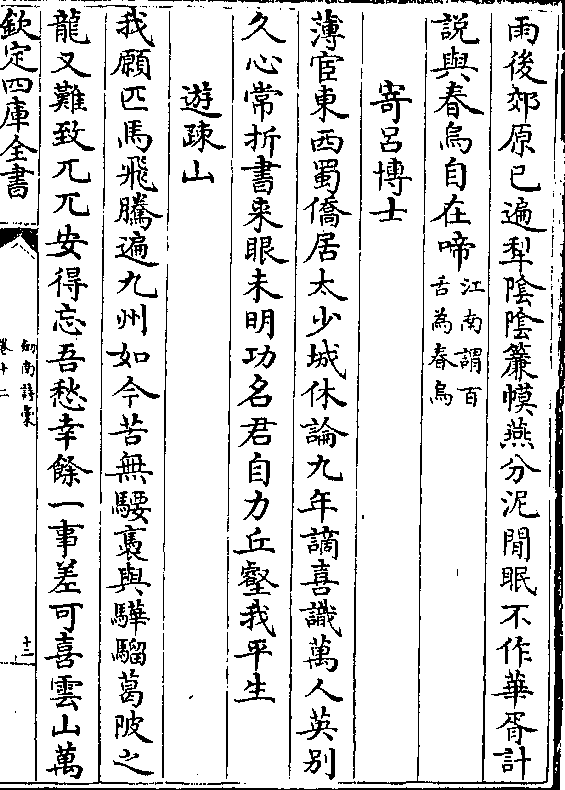 雨後郊原已遍犁陰陰簾幙燕分泥閒眠不作華胥計
説與春烏自在啼江南謂百舌為春烏
寄呂博士
薄宦東西蜀僑居太少城休論九年謫喜識萬人英别
久心常折書来眼未明功名君自力丘壑我平生
遊疎山
我願匹馬飛騰遍九州如今苦無騕褭與驊騮葛陂之
龍又難致兀兀安得忘吾愁幸餘一事差可喜雲山萬
欽定四庫全書
劍南詩稾
卷十二
十二